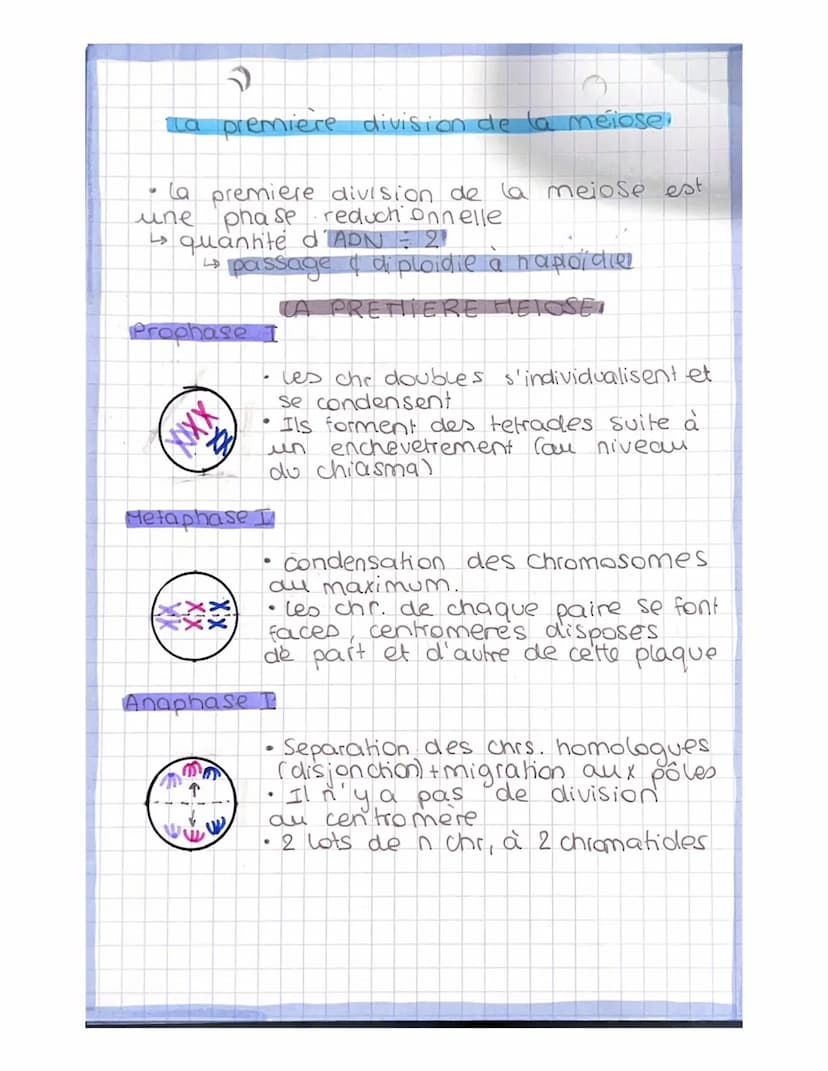 La première division de la méiose
• La premiere division de la meiose est
une phase reductionnelle
↳ quantité d'ADN ÷ 2
↳ passage d diploidie à haploïdie
LA PREMIERE MEIOSE
Prophase I
• Les chr doubles s'individualisent et
se condensent
• Ils forment des tetrades suite à
un enchevetrement (au niveau
du chiasma)
Metaphase I
• condensation des chromosomes
au maximum.
• Les chr. de chaque paire se font
faces, centromeres disposés
de part et d'autre de cette plaque
Anaphase I
• Separation des chrs. homologues
(disjonction) + migration aux pôles
• Il n'y a pas de division
au centromère
• 2 lots de n chr, à 2 chromatides